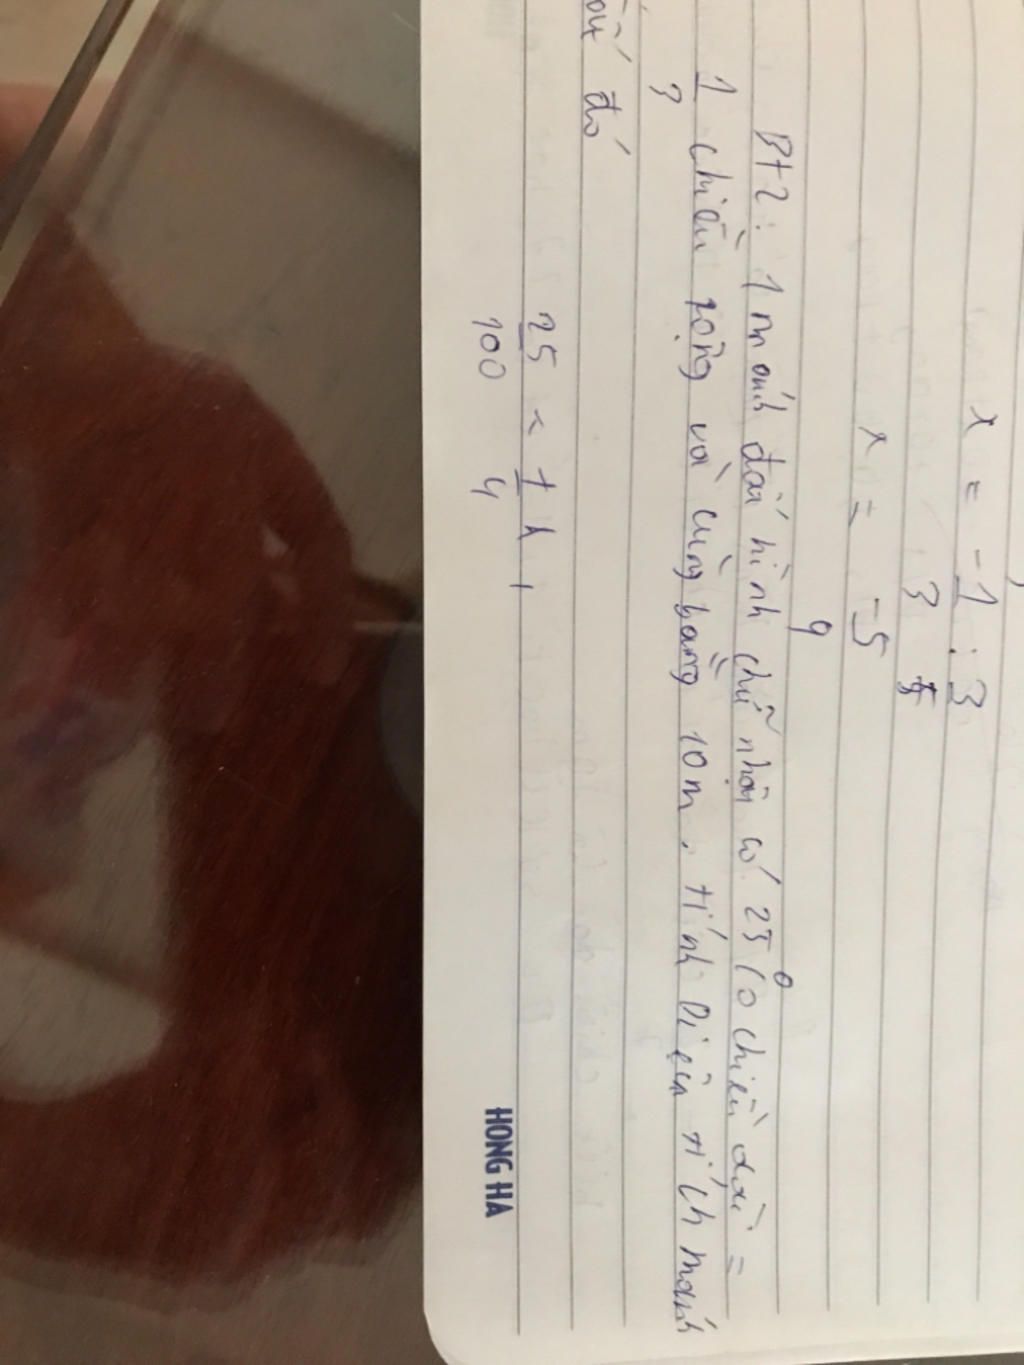 x = -1 : 3
3 5
x = -5
9
Bt2: 1 mảnh đất hình chữ nhật có 25% chiều dài =
1 chiều rộng và cùng bằng 10m. tính Diện tích mảnh
3
đất đó
25 = 1
100 4
HONG HA